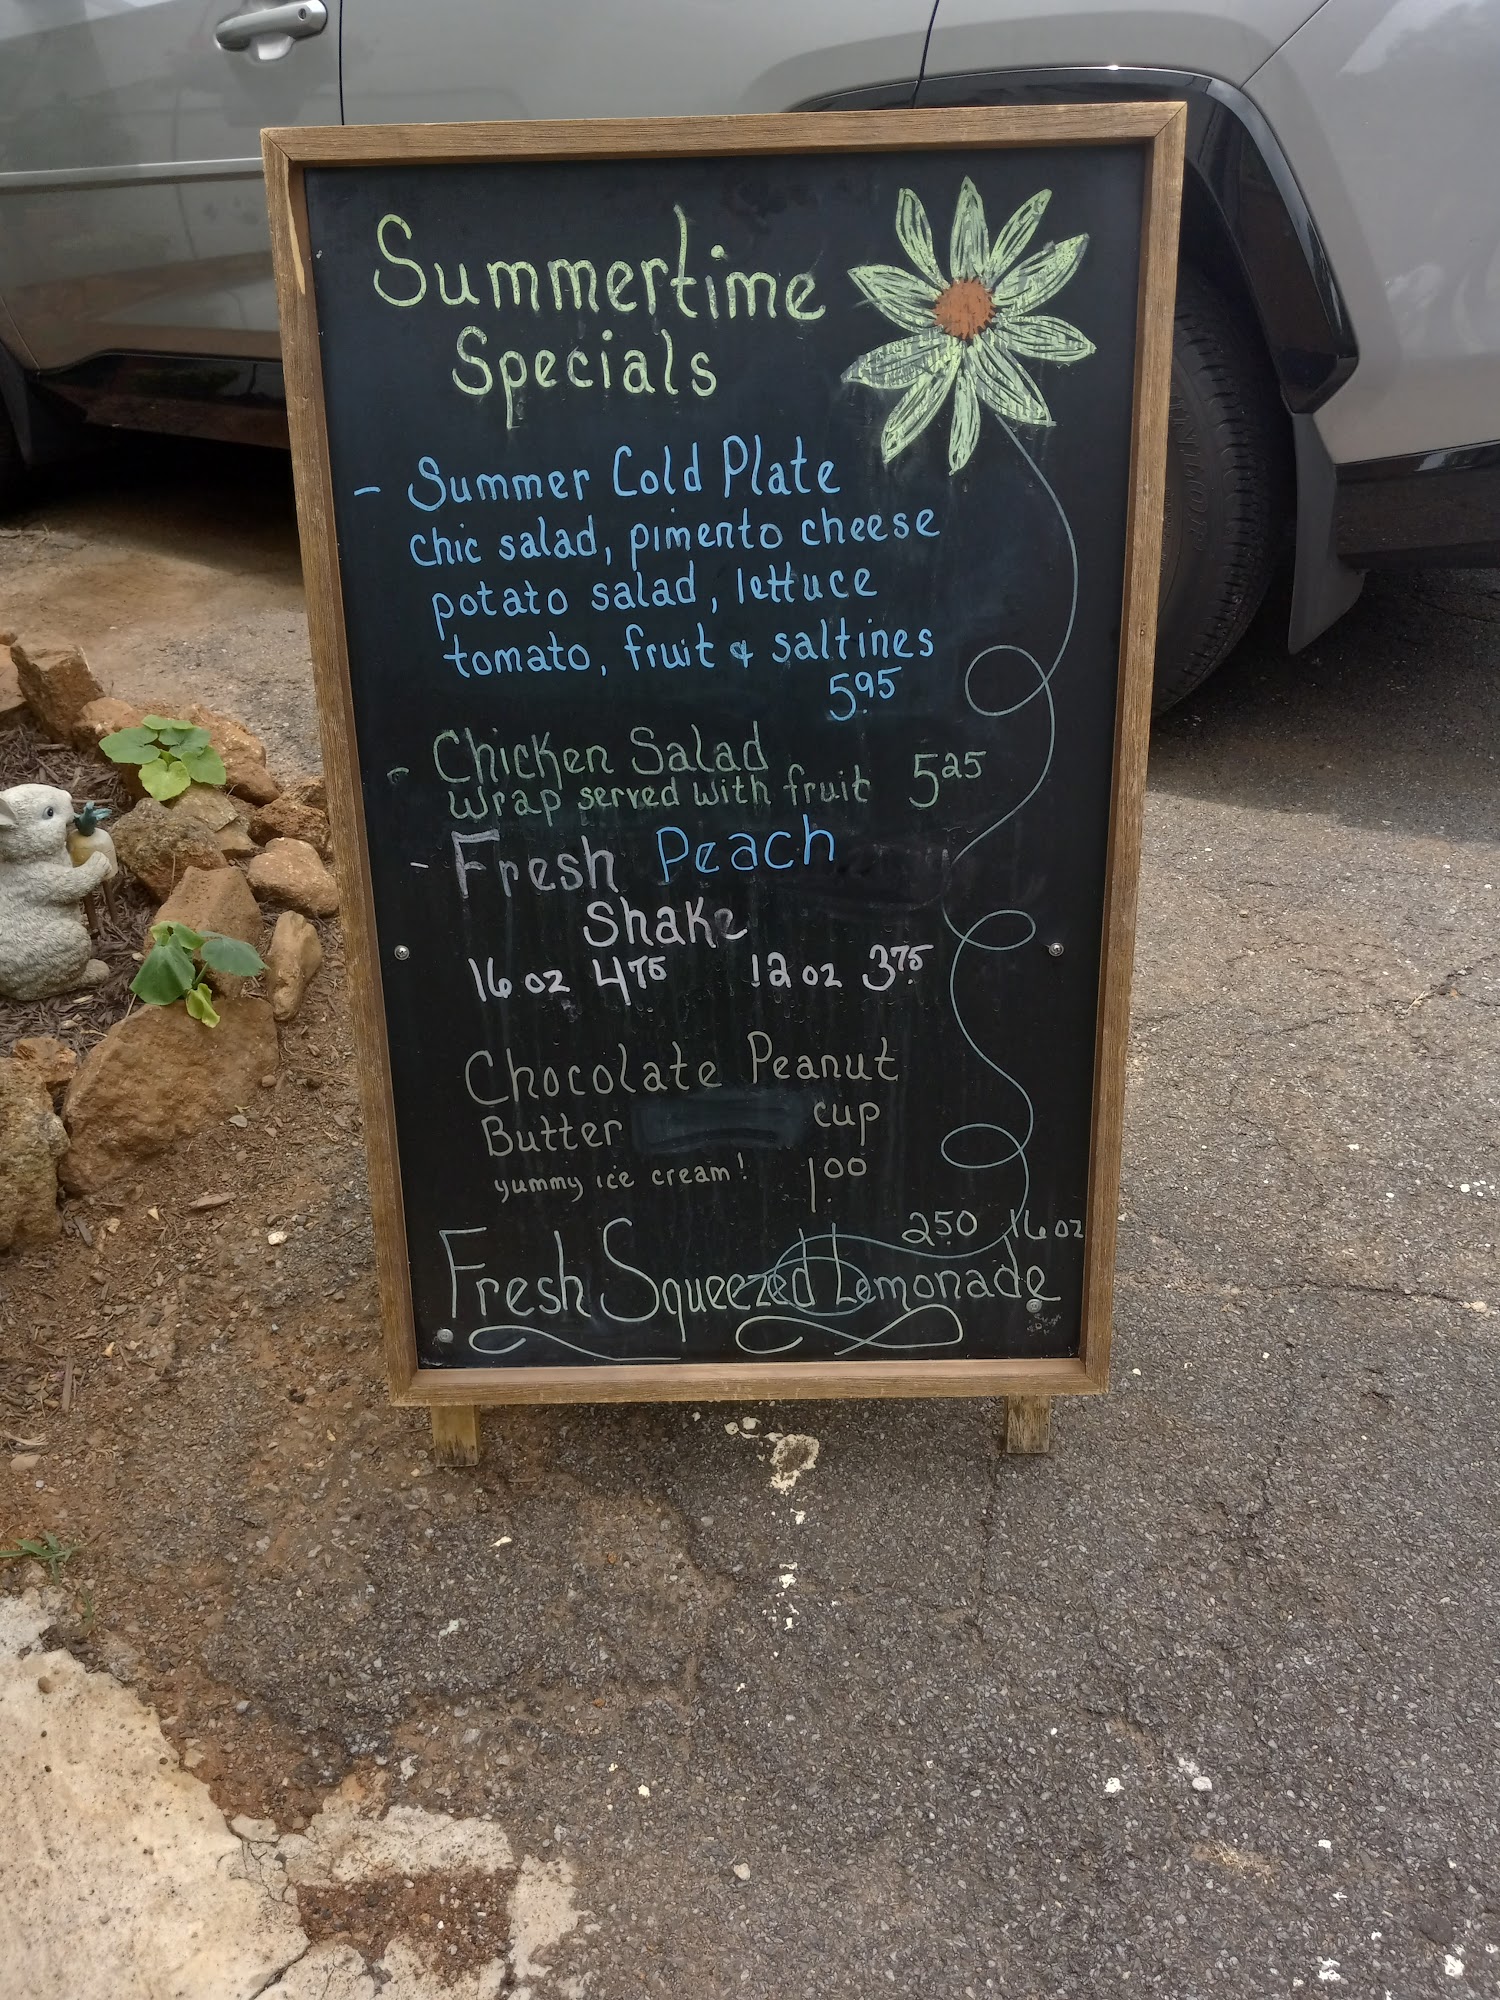 Summertime
Specials
- Summer Cold Plate
chic salad, pimento cheese
potato salad, lettuce
tomato, fruit & saltines
5.95
- Chicken Salad
wrap served with fruit 5.25
- Fresh Peach
Shake
16 oz 4.75 12 oz 3.75
Chocolate Peanut
Butter cup
yummy ice cream! 1.00
2.50 16 oz
Fresh Squeezed Lemonade